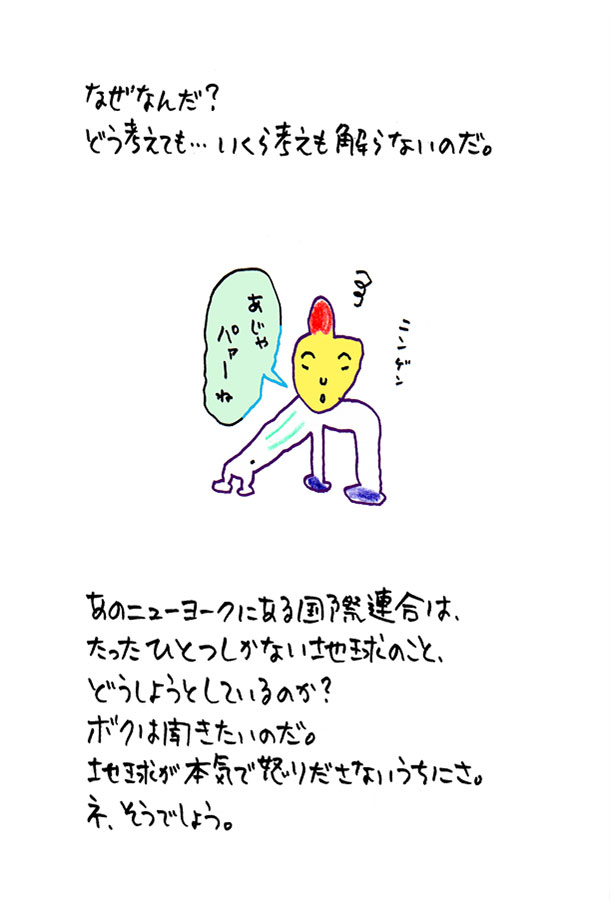 なぜなんだ?
どう考えても…いくら考えも解らないのだ。
あじゃ
パァーね
ニンゲン
あのニューヨークにある国際連合は、
たったひとつしかない地球のこと、
どうしようとしているのか?
ボクは聞きたいのだ。
地球が本気で怒りださないうちにさ。
ネ、そうでしょう。